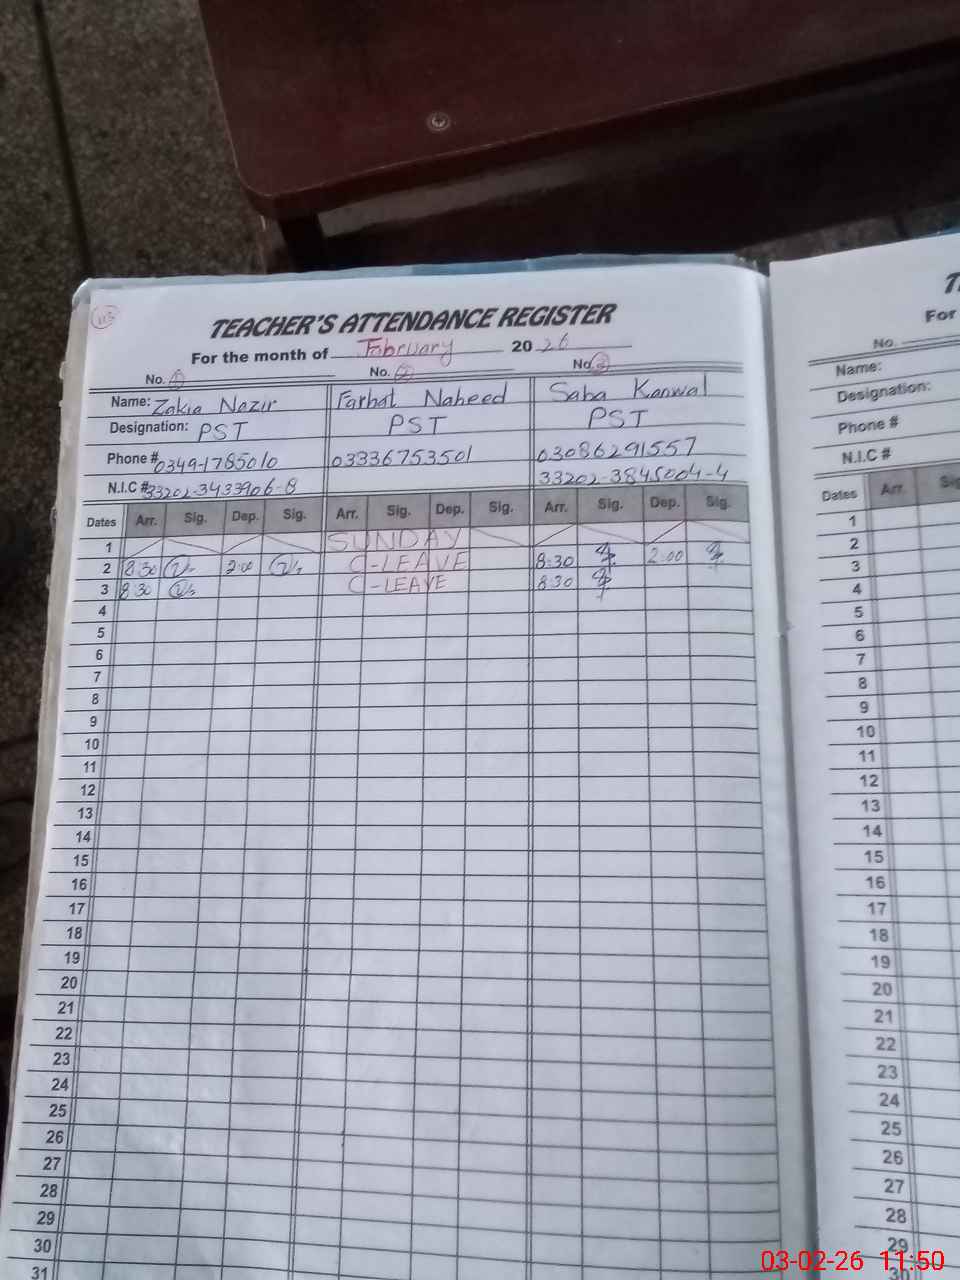 113
TEACHER'S ATTENDANCE REGISTER
For the month of February 20 26
No. 1 No. 2 No. 3
Name: Zakia Nazir Farhat Naheed Saba Kanwal
Designation: PST PST PST
Phone # 0349-1785010 03336753501 03086291557
N.I.C # 33202-3433906-8 33202-3845004-4
Dates Arr. Sig. Dep. Sig. Arr. Sig. Dep. Sig. Arr. Sig. Dep. Sig.
1 SUNDAY
2 8:30 2:00 C-LEAVE 8:30 2:00
3 8:30 C-LEAVE 8:30
4
5
6
7
8
9
10
11
12
13
14
15
16
17
18
19
20
21
22
23
24
25
26
27
28
29
30
31
For
No.
Name:
Designation:
Phone #
N.I.C #
Dates Arr.
1
2
3
4
5
6
7
8
9
10
11
12
13
14
15
16
17
18
19
20
21
22
23
24
25
26
27
28
29
30
03-02-26 11:50